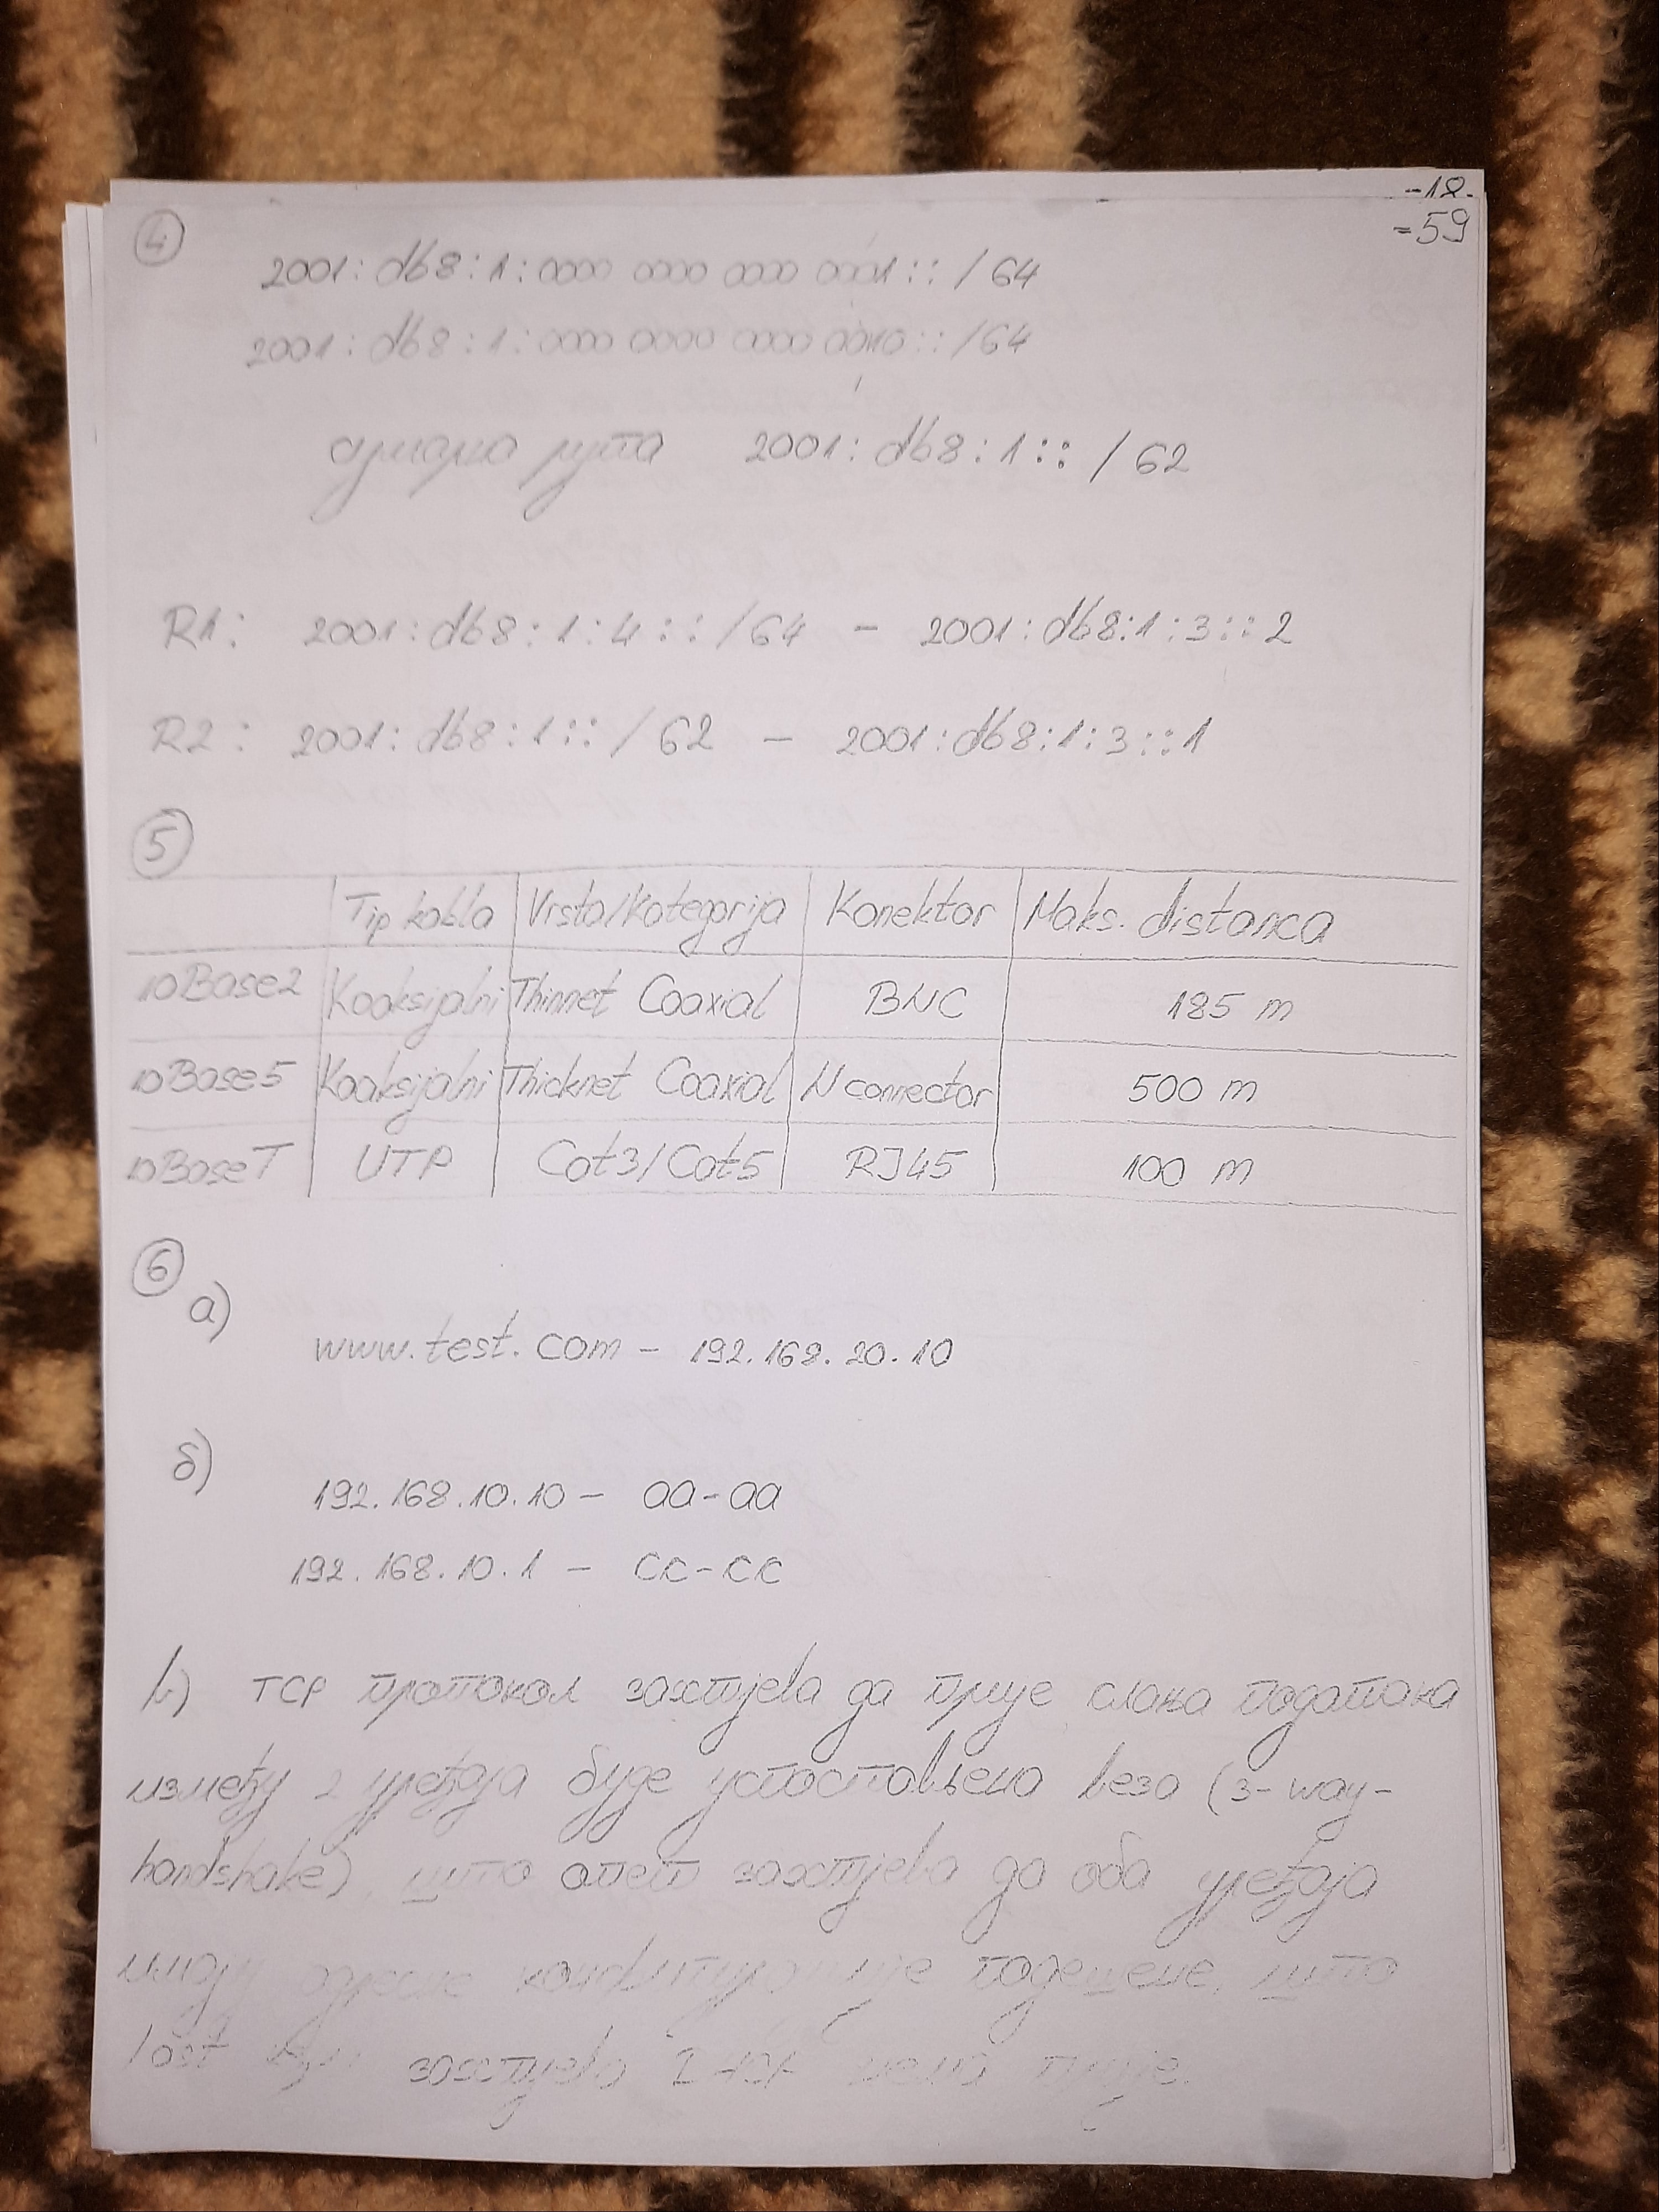 -18-
-59
4
2001:db8:1:0000 0000 0000 0001::/64
2001:db8:1:0000 0000 0000 0010::/64
сумарна рута 2001:db8:1::/62
R1: 2001:db8:1:4::/64 - 2001:db8:1:3::2
R2: 2001:db8:1::/62 - 2001:db8:1:3::1
5
Tip kabla Vrsta/Kategorija Konektor Maks. distanca
10Base2 Koaksijalni Thinnet Coaxial BNC 185 m
10Base5 Koaksijalni Thicknet Coaxial N connector 500 m
10BaseT UTP Cat3/Cat5 RJ45 100 m
6
а)
www.test.com - 192.168.20.10
б)
192.168.10.10 - aa-aa
192.168.10.1 - cc-cc
в) TCP протокол захтјева да прије слања података
између 2 уређаја буде успостављена веза (3-way-
handshake), што опет захтјева да оба уређаја
имају адресе подешене, што
захтјева прије.